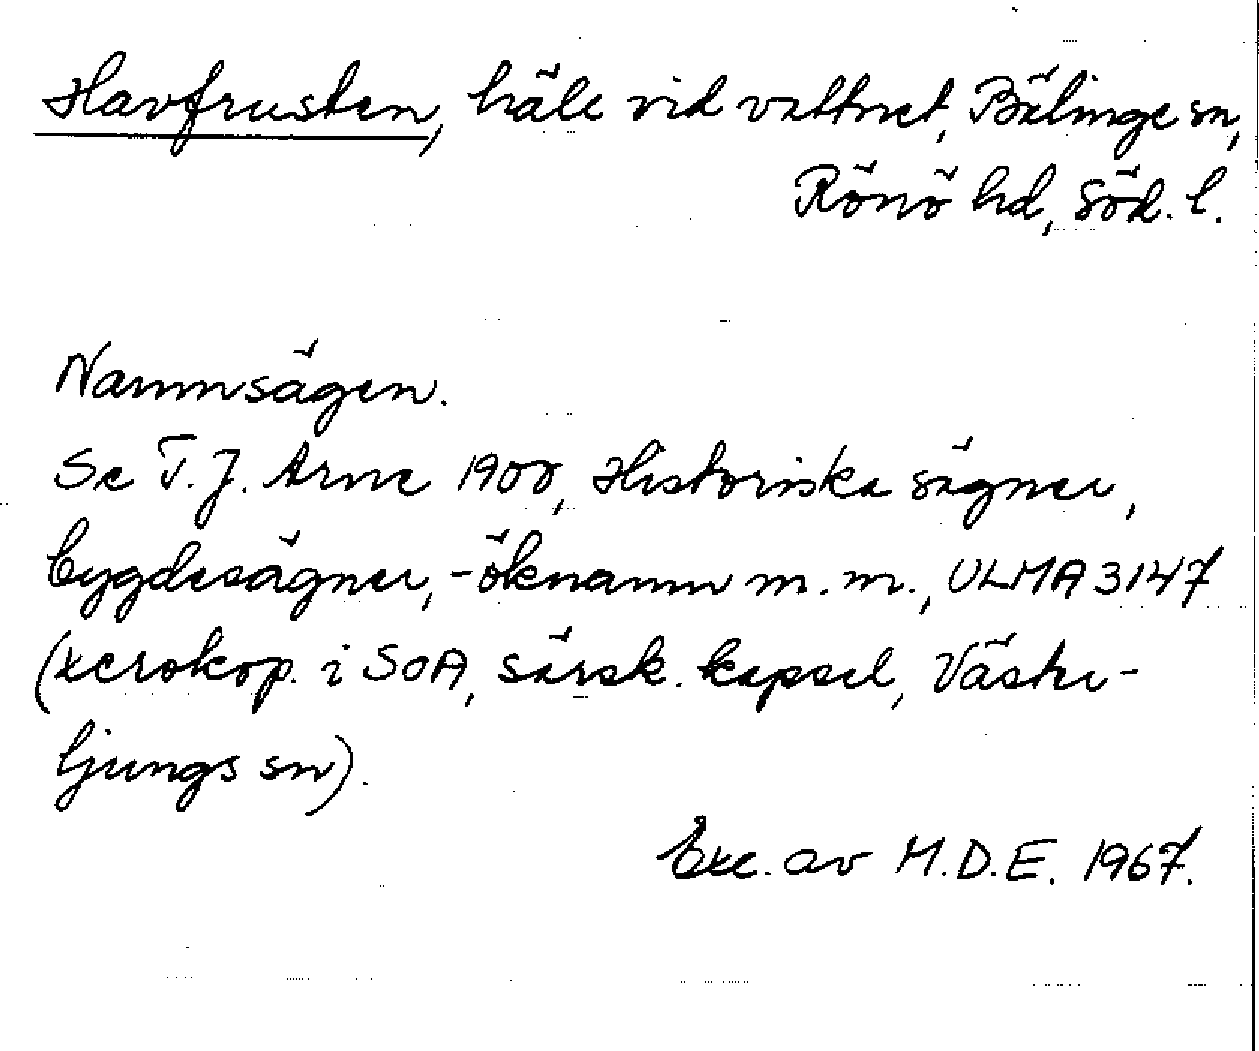 Havfrusten, häle vid vattnet, Bälinge sn,
Rönö hd, Söd. l.
Namnsägen.
Se T. J. Arne 1900, Historiska sägner,
bygdesägner, -öknamn m. m., ULMA 3147
(xerokop. i SOA, särsk. kapsel, Väster-
ljungs sn).
Exc. av M.D.E. 1967.